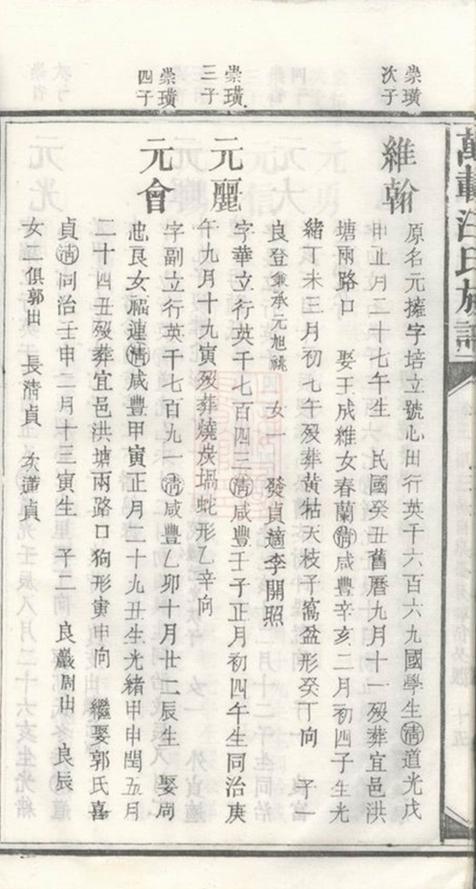 萬載汪氏族譜
崇璜次子
維翰
原名元擁字培立號心田行英千六百六九國學生清道光戊
申正月二十七午生 民國癸丑舊曆九月十一歿葬宜邑洪
塘兩路口 娶王成維女春蘭清咸豐辛亥二月初四子生光
緒丁未三月初七午歿葬黃牯天枝子篙盆形癸丁向 子一
良登兼承元旭祧 女一 發貞適李開照
崇璜三子
元麗
字華立行英千七百四三清咸豐壬子正月初四午生同治庚
午九月十九寅歿葬燒炭塥蛇形乙辛向
崇璜四子
元會
字副立行英千七百九一清咸豐乙卯十月廿二辰生 娶周
忠良女福連清咸豐甲寅正月二十九丑生光緒甲申閏五月
二十四丑歿葬宜邑洪塘兩路口狗形寅申向 繼娶郭氏喜
貞清同治壬申二月十三寅生 子二 良巖周出 良辰
女二俱郭出 長清貞 次蓮貞